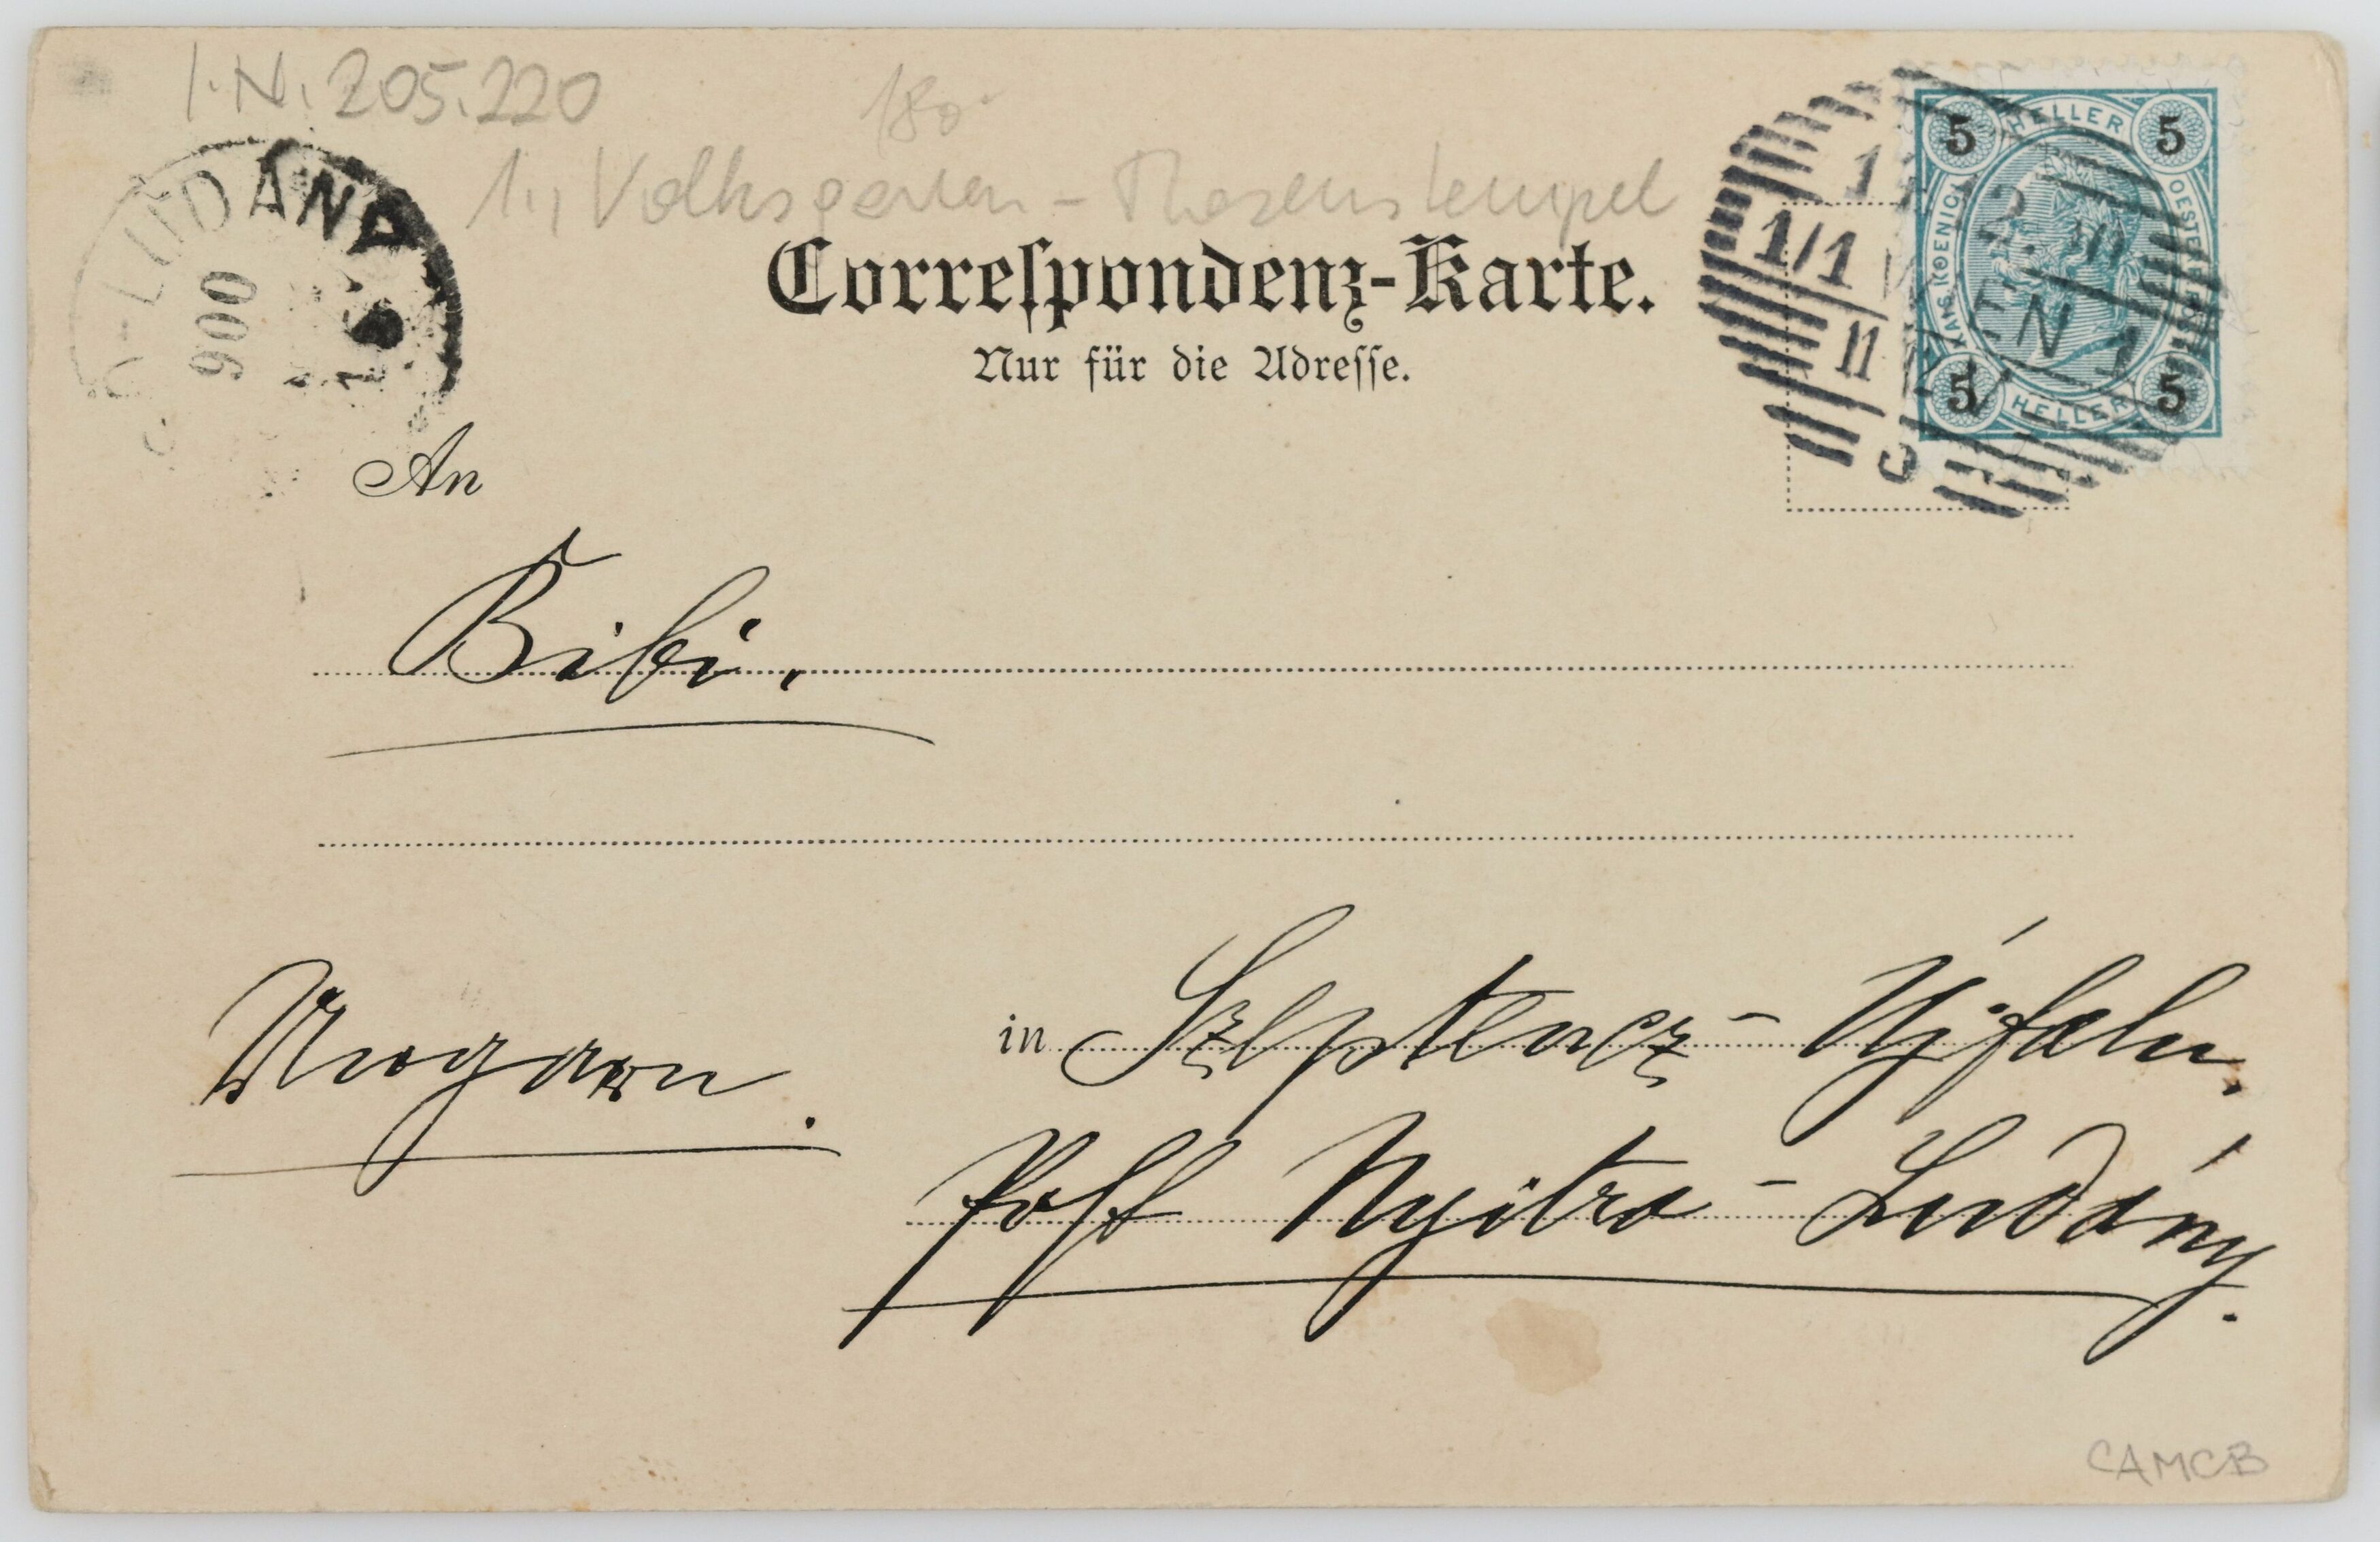 I.N. 205.220
180
1., Volksgarten - Theseustempel
Correſpondenz-Karte.
Nur für die Adreſſe.
-LUDÁNY
900
HELLER
5 5
KAIS. KOENIGL. OESTERR.
5 5
HELLER
1/1
11
WIEN 1
An
Bibi.
in Szeptencz-Ujfalu.
Ungarn.
Post Nyitra-Ludány.
CAMCB